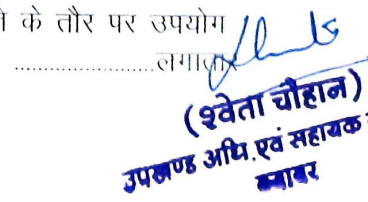 के तौर पर उपयोग
......................लगातार
(श्वेता चौहान)
उपखण्ड अधि.एवं सहायक
ब्यावर